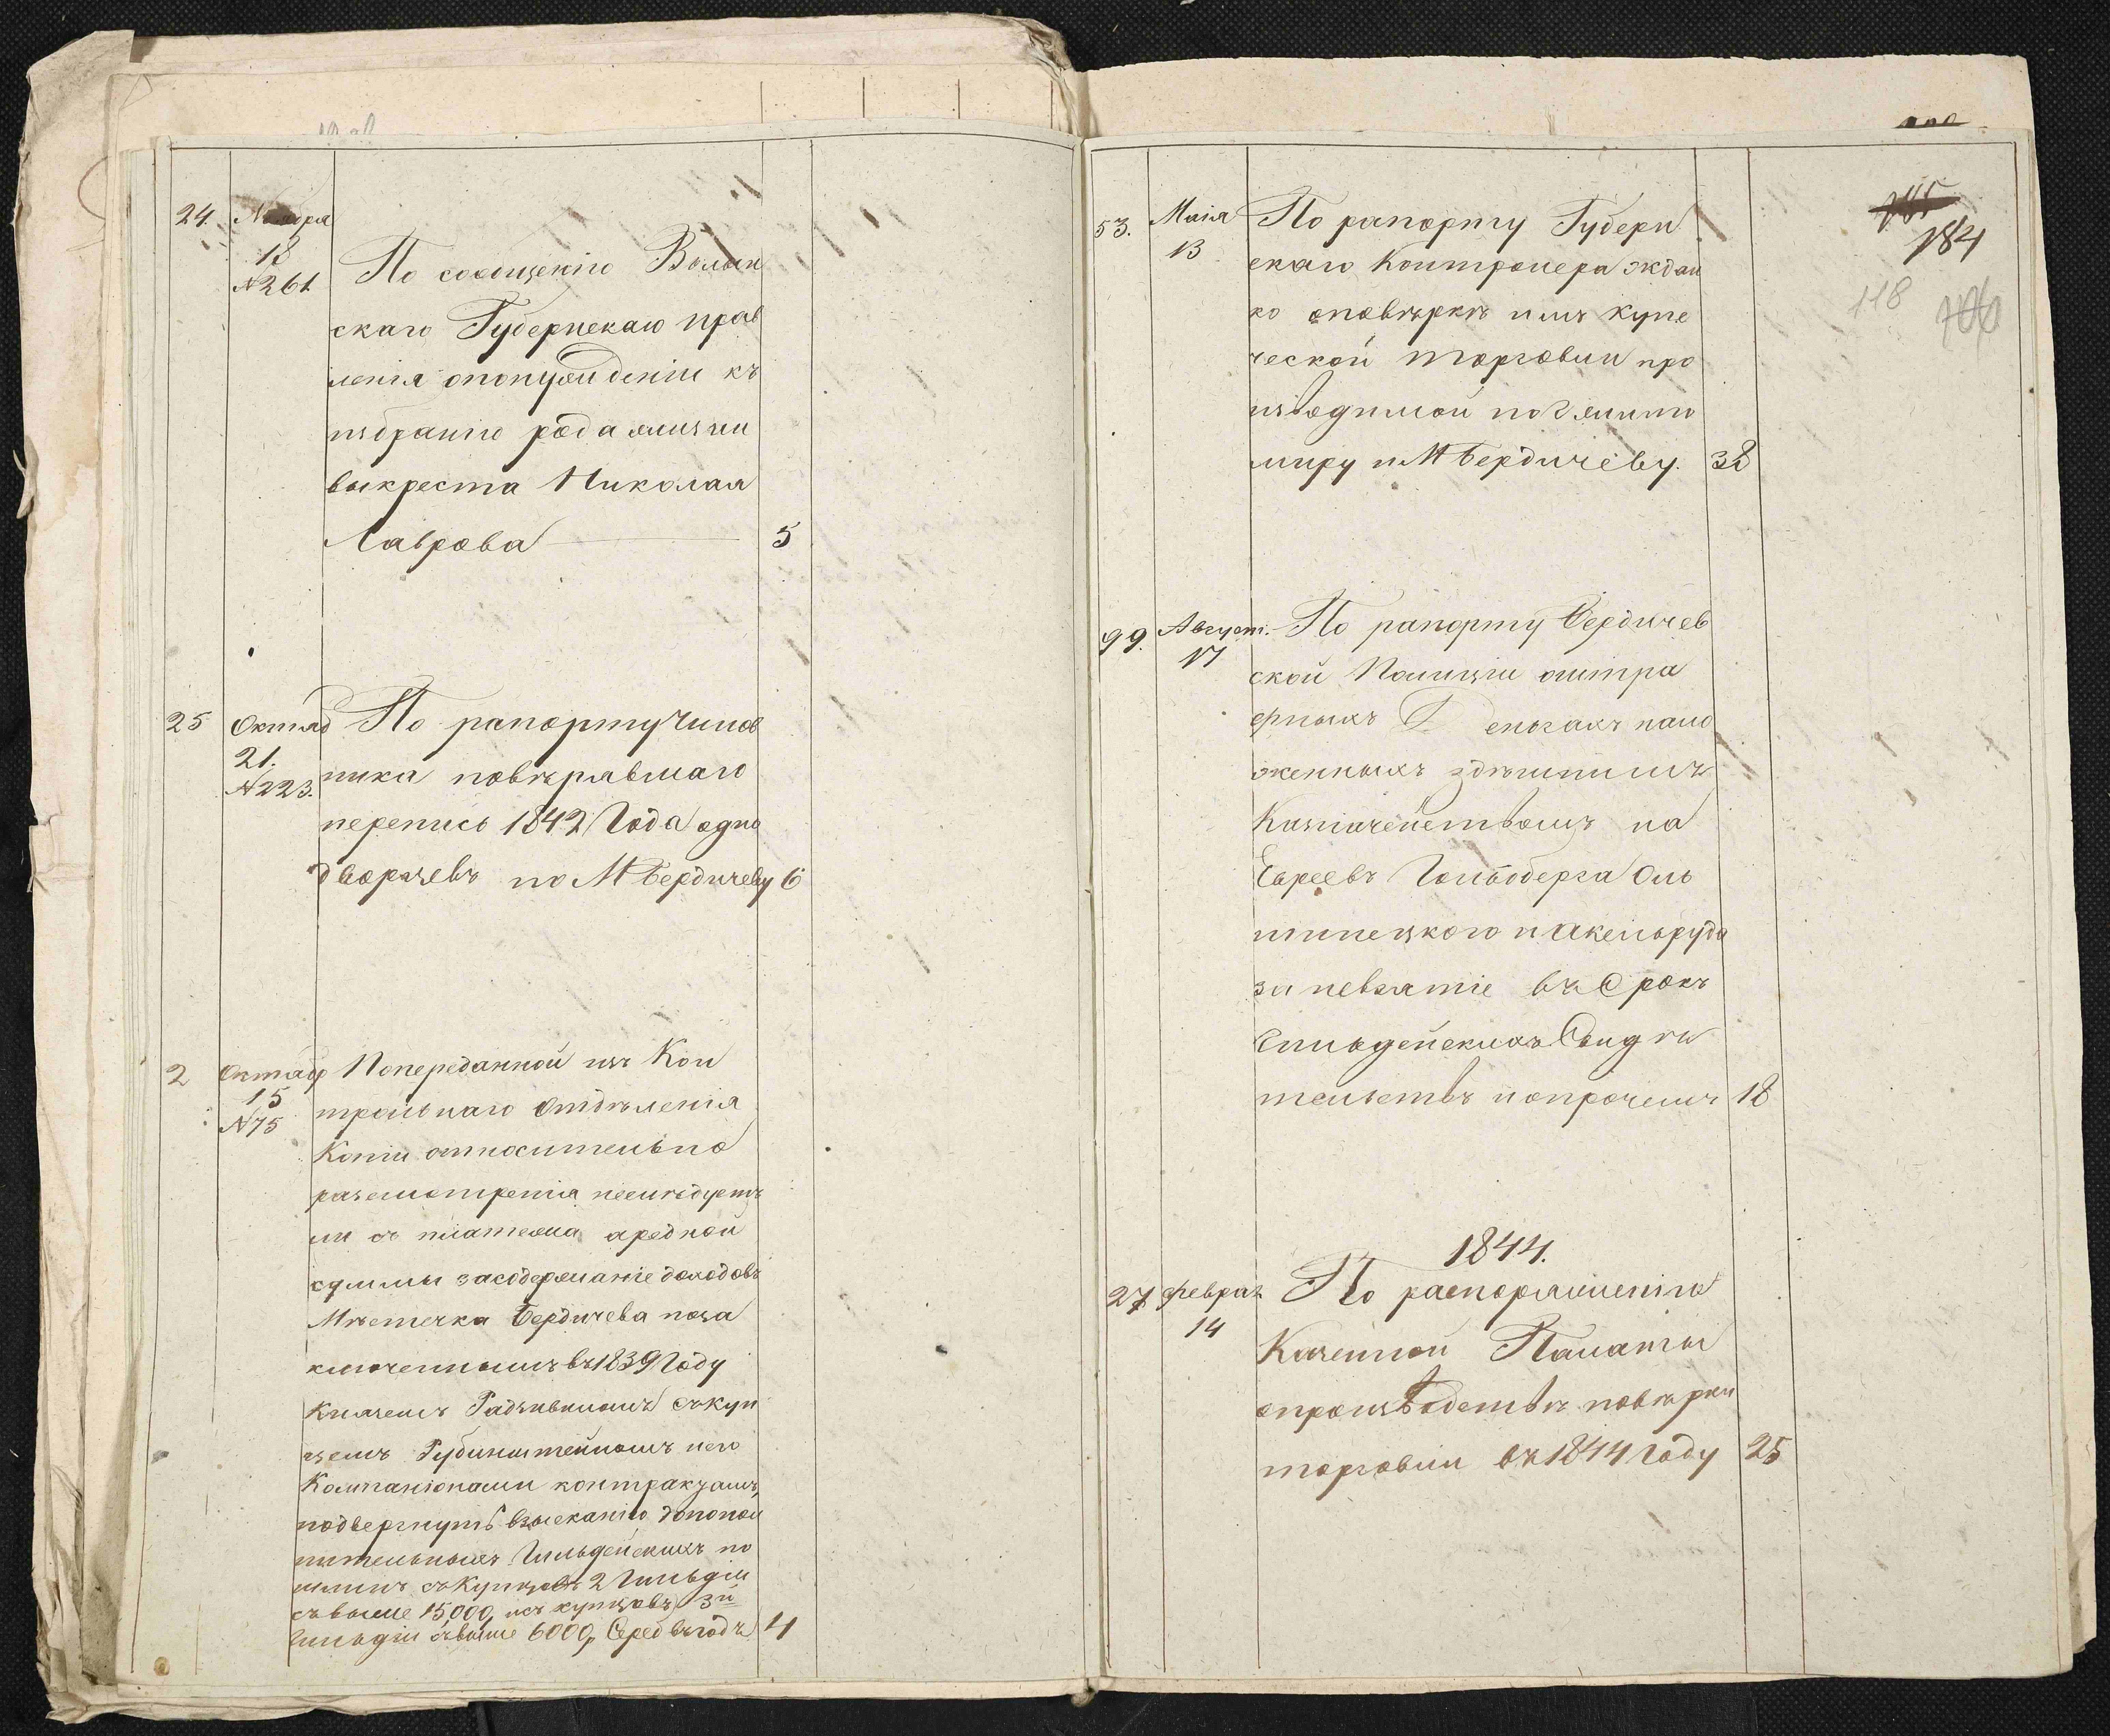 24. Ноября
18
№ 261.
По сообщенію Волын
скаго Губернскаго прав
ленія опонужденіи къ
избранію рода жизни
выкреста Николая
Лаврова 5
25 Октяб
21.
№ 223.
По рапорту Чинов
ника повѣрявшаго
перепись 1842 Года одно
дворцевъ по М Бердичеву 6
2 Октябр
15
№ 75
Попереданной изъ Кон
трольнаго Отдѣленія
Копіи относительно
разсмотренія неслѣдуетъ
ли съ платежа аредной
суммы засодержаніе доходовъ
Мѣстечка Бердичева поза
ключеннымъ въ 1839 Году
Княземъ Радзивиломъ съкуп
цемъ Рубинштейномъ иего
Компаніонами контрактамъ,
подвергнуть взысканію дополн
нительныхъ Гильдейскихъ по
шлинъ съКупцовъ 2 Гильдіи
свыше 15,000, исъ купцовъ 3й
Гильдіи свыше 6000, Среб въгодъ 4
185
184
118
53. Маія
13
По рапорту Губерн
скаго Контролера Ждан
ко оповѣркѣ имъ купе
ческой торговли про
изводимой по Г Жито
миру и М Бердичеву. 38
99. Август.
17
По рапорту Бердичев
ской Полиціи оштра
фныхъ Деньгахъ нало
женныхъ здѣшнимъ
Казначействомъ на
Евреевъ Гольдберга Оль
шанецкого и Акельруда
за невзятіе въ Срокъ
Гильдейскихъ Свидѣ
тельствъ и опрочемъ 18
1844.
27 Феврал
14
По распоряженію
Казенной Палаты
опроизводствѣ повѣрки
торговли въ 1844 Году 25